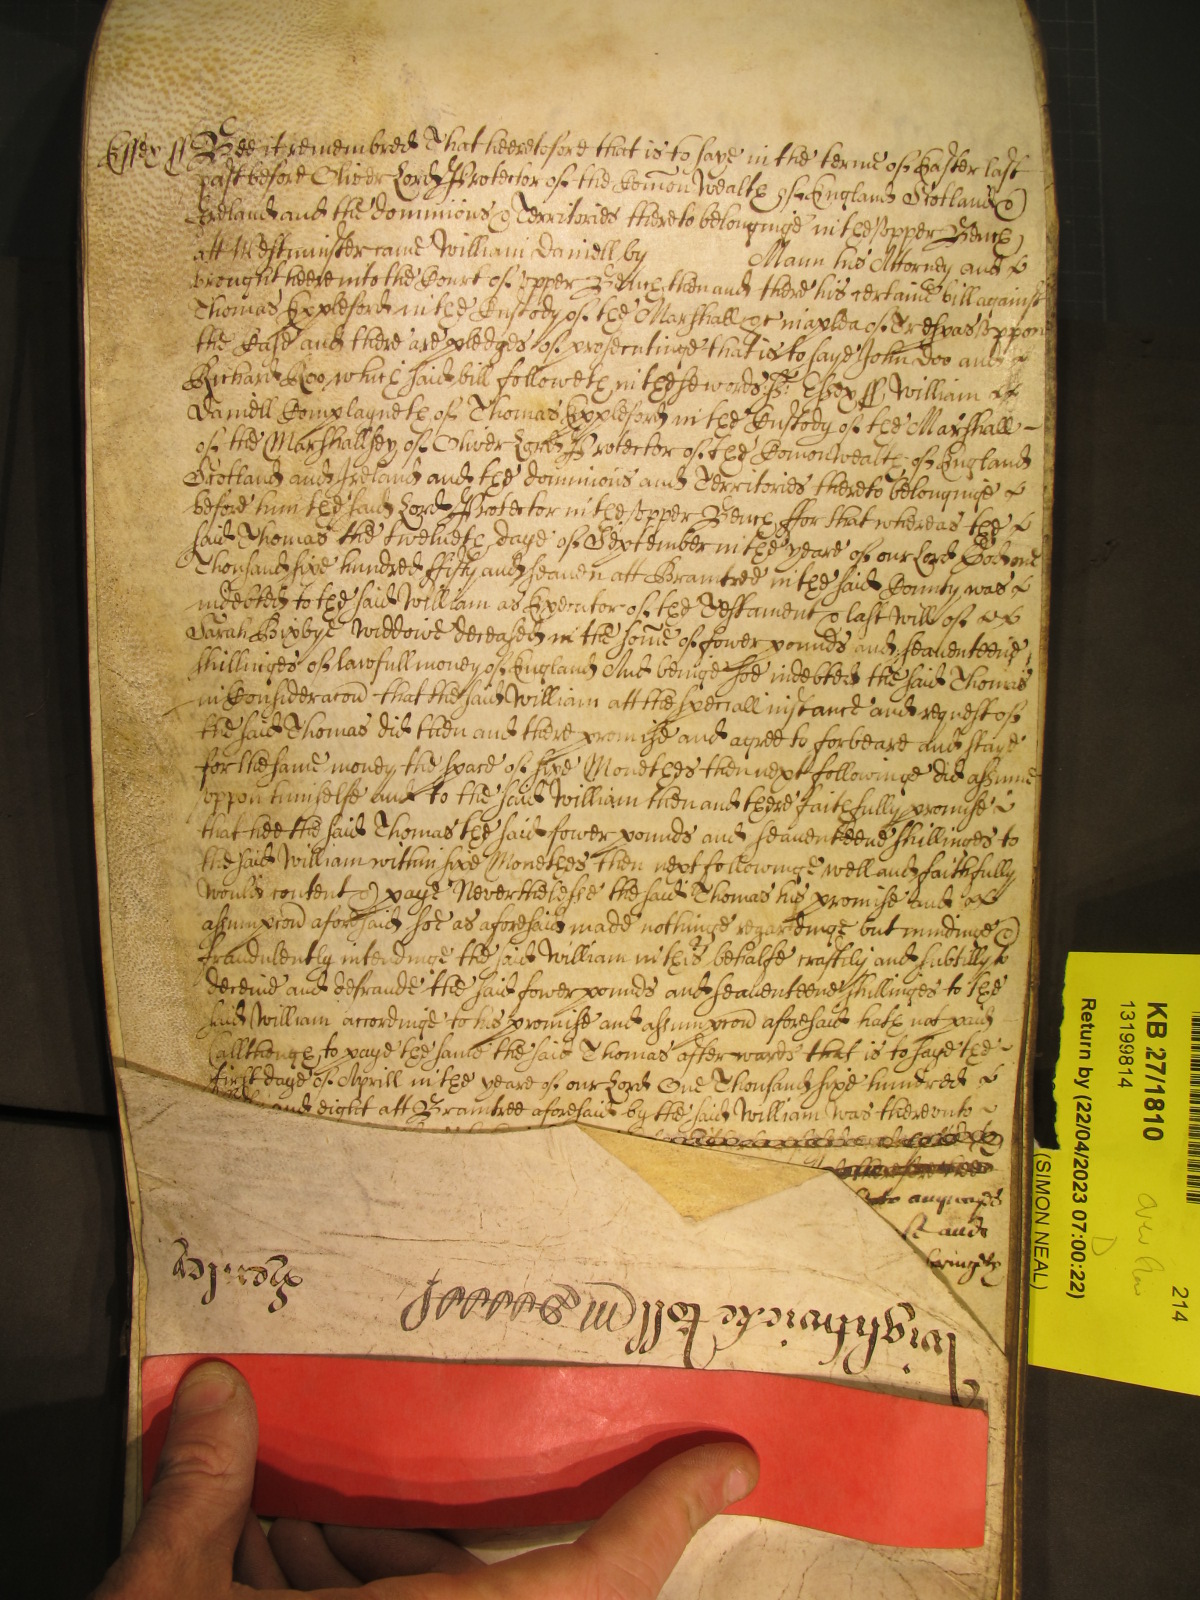 Essex ss Bee it remembred That heeretofore that is to saye in the terme of Easter last
past before Oliver Lord Protector of the Comon Wealth of England Scotland &
Ireland and the dominions & Territories thereto belonginge in the upper Bench
att Westminster came William Daniell by Mann his Attorney and
brought heere into the Court of upper Bench then and there his certaine bill against
Thomas Eppleford in the Custody of the Marshall &c in a plea of Trespas uppon
the Case and there are pledges of prosecutinge that is to saye John Doo and
Richard Roo which said bill followeth in these words ss: Essex ss William
Daniell Complayneth of Thomas Eppleford in the Custody of the Marshall
of the Marshallsey of Oliver Lord Protector of the Comon Wealth of England
Scotland and Ireland and the dominions and Territories thereto belonginge
before him the said Lord Protector in the upper Bench ffor that whereas the
said Thomas the twelveth daye of September in the yeare of our Lord God one
Thousand sixe hundred ffifty and seaven att Braintree in the said County was
indebted to the said William as Executor of the Testament & last Will of
Sarah Bixbye Widdowe deceased in the some of fower pounds and seaventeene
shillinges of lawfull money of England And beinge soe indebted the said Thomas
in Consideracon that the said William att the speciall instance and request of
the said Thomas did then and there promise and agree to forbeare and staye
for the same money the space of sixe Monethes then next followinge did assume
uppon himselfe and to the said William then and there faithfully promise
that hee the said Thomas the said fower pounds and seaventeene shillinges to
the said William within sixe Monethes then next followinge well and faithfully
would content & paye Neverthelesse the said Thomas his promise and
assumpcon aforesaid soe as aforesaid made nothinge regardinge but mindinge &
fraudulently intendinge the said William in this behalfe craftily and subtilly to
deceive and defraude the said fower pounds and seaventeene shillinges to the
said William accordinge to his promise and assumpcon aforesaid hath not paid
(allthough to paye the same the said Thomas afterwards that is to saye the
first daye of Aprill in the yeare of our Lord One Thousand sixe hundred
and eight att Braintree aforesaid by the said William was thereunto
to any
and
Wightwicke Roll M
KB 27/1810
13199814
Return by (22/04/2023 07:00:22)
(SIMON NEAL)
214